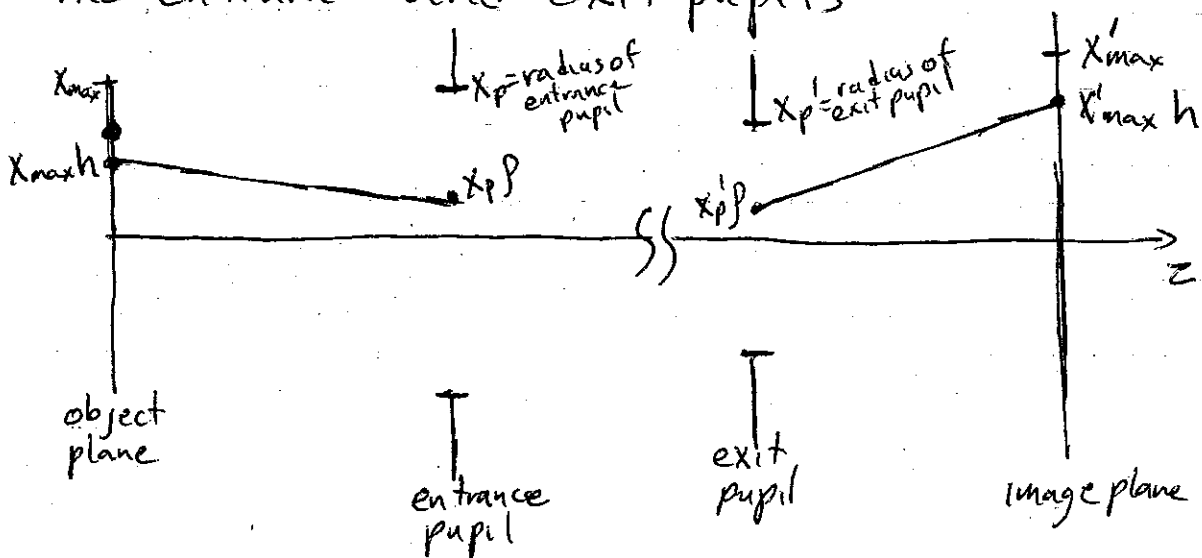 The entrance and exit pupils
xmax
xp = radius of
entrance
pupil
xp' = radius of
exit pupil
x'max
xmax h
x'max h
xp ρ
xp' ρ
z
object
plane
entrance
pupil
exit
pupil
image plane